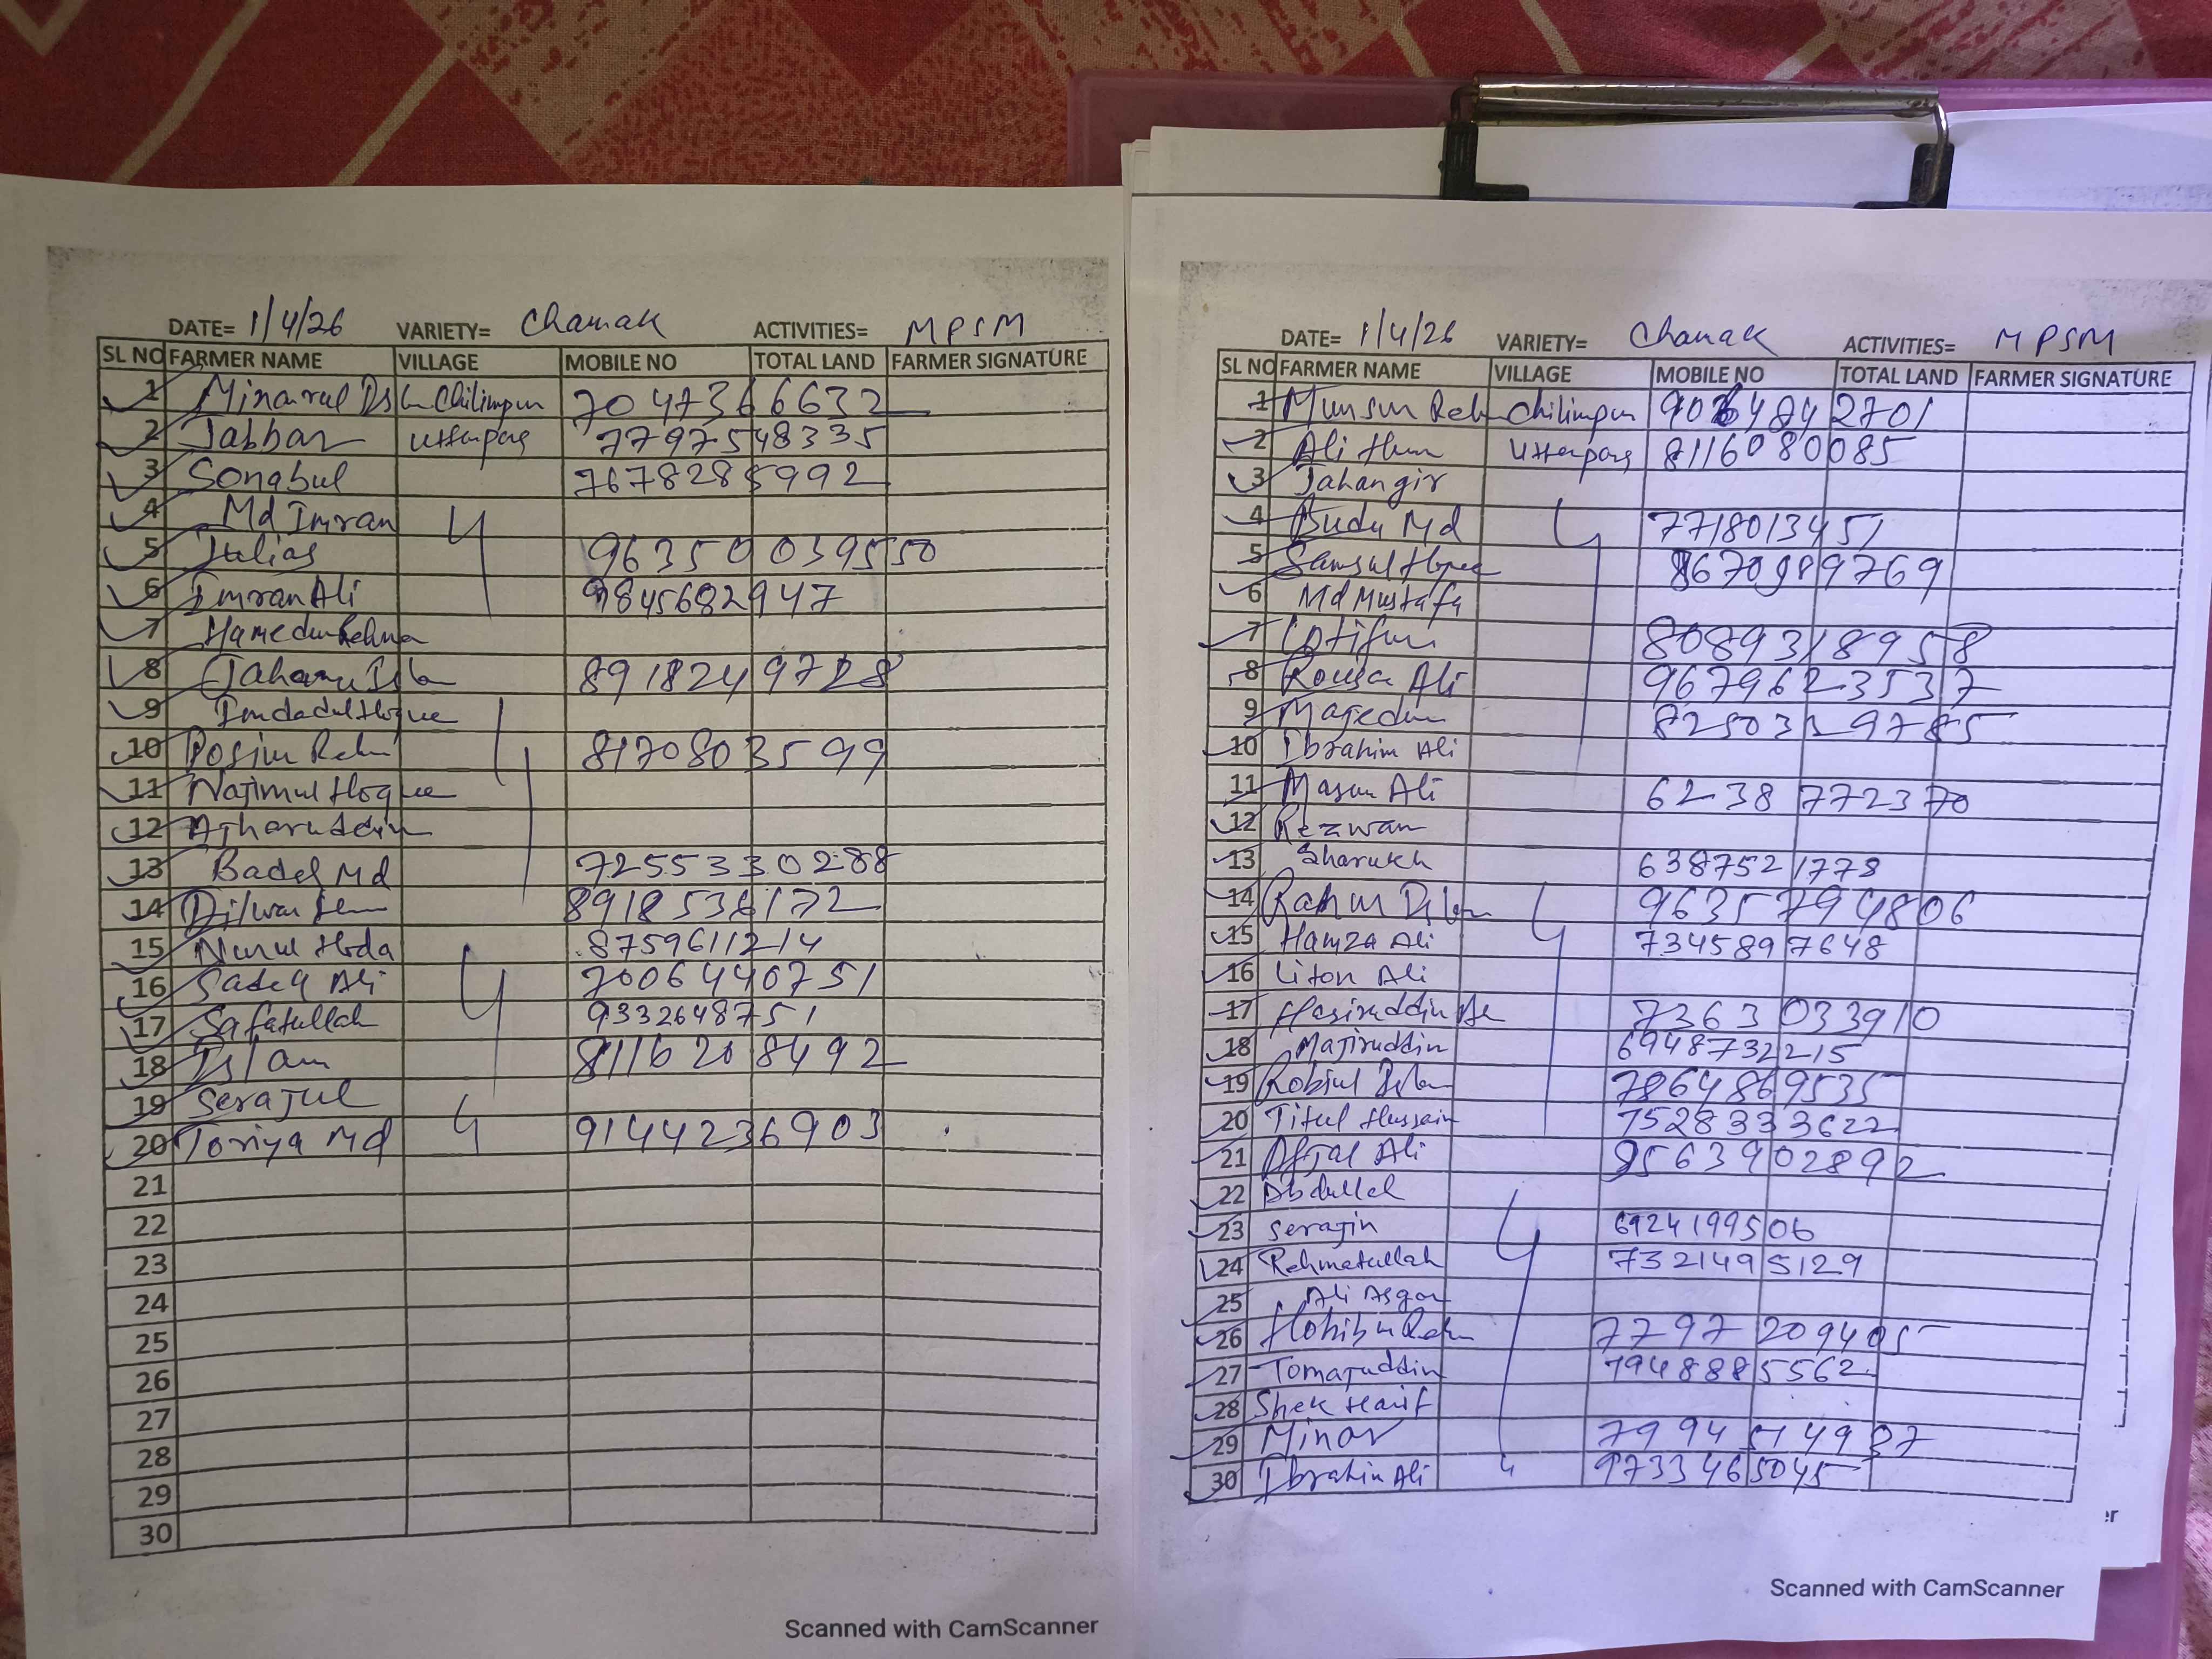 DATE= 1/4/26 VARIETY= Chamak ACTIVITIES= MPSM
SL NO FARMER NAME VILLAGE MOBILE NO TOTAL LAND FARMER SIGNATURE
1 Minarul Isln Chilimpur 7047366632
2 Jabbar Uttarpara 7797548335
3 Sonabul 7678285992
4 Md Imran
5 Julias
6 Imran Ali 9845682947
7 Hamedur Rehma
8 8918249728
9 Imdadul Hoque
10 Rosim Rehn 8170803599
11 Najimul Hoque
12 Ajharuddin
13 Badel Md 7255330288
14 Dilwar 8918536172
15 Nurul Hoda 8759611214
16 Sadek Ali 7006440751
17 Safatullah 9332648751
18 Islam 8116208492
19 Serajul
20 Toriya Md 9144236903
21
22
23
24
25
26
27
28
29
30
Scanned with CamScanner
DATE= 1/4/26 VARIETY= Chamak ACTIVITIES= MPSM
SL NO FARMER NAME VILLAGE MOBILE NO TOTAL LAND FARMER SIGNATURE
1 Munsur Rehn Chilimpur
2 Ali Uttarpara 8116080085
3 Jahangir
4 Budu Md 7718013451
5 Samsul Hoque 8670989769
6 Md Mustafa
7 Lotifur 8089318958
8 Ali 9679623537
9 Majedur 8250339785
10 Ibrahim Ali
11 Masum Ali 6238772370
12 Rezwan
13 Sharukh 6387521778
14 Isln 9635794806
15 Hamza Ali 7345897648
16 Liton Ali
17 Hasiruddin 7363033910
18 Majiruddin 6948732215
19 Robiul Isln 7864869535
20 Titul Hussain 7528333622
21 Aftal Ali 9563902892
22 Abdullah
23 Serajin 6924199506
24 Rehmatullah 7321495129
25 Ali Asgar
26 Hobibur Rehn 7797209405
27 Tomajuddin 7948885562
28 Shek Harif
29 Minar 7994514937
30 Ibrahim Ali 9733465045
er
Scanned with CamScanner